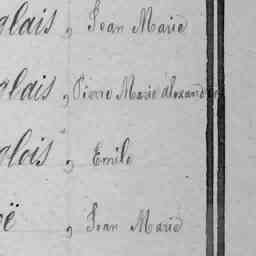 glais, Jean Marie
glais, Pierre Marie alexandre
glois, Emile
ë, Jean Marie